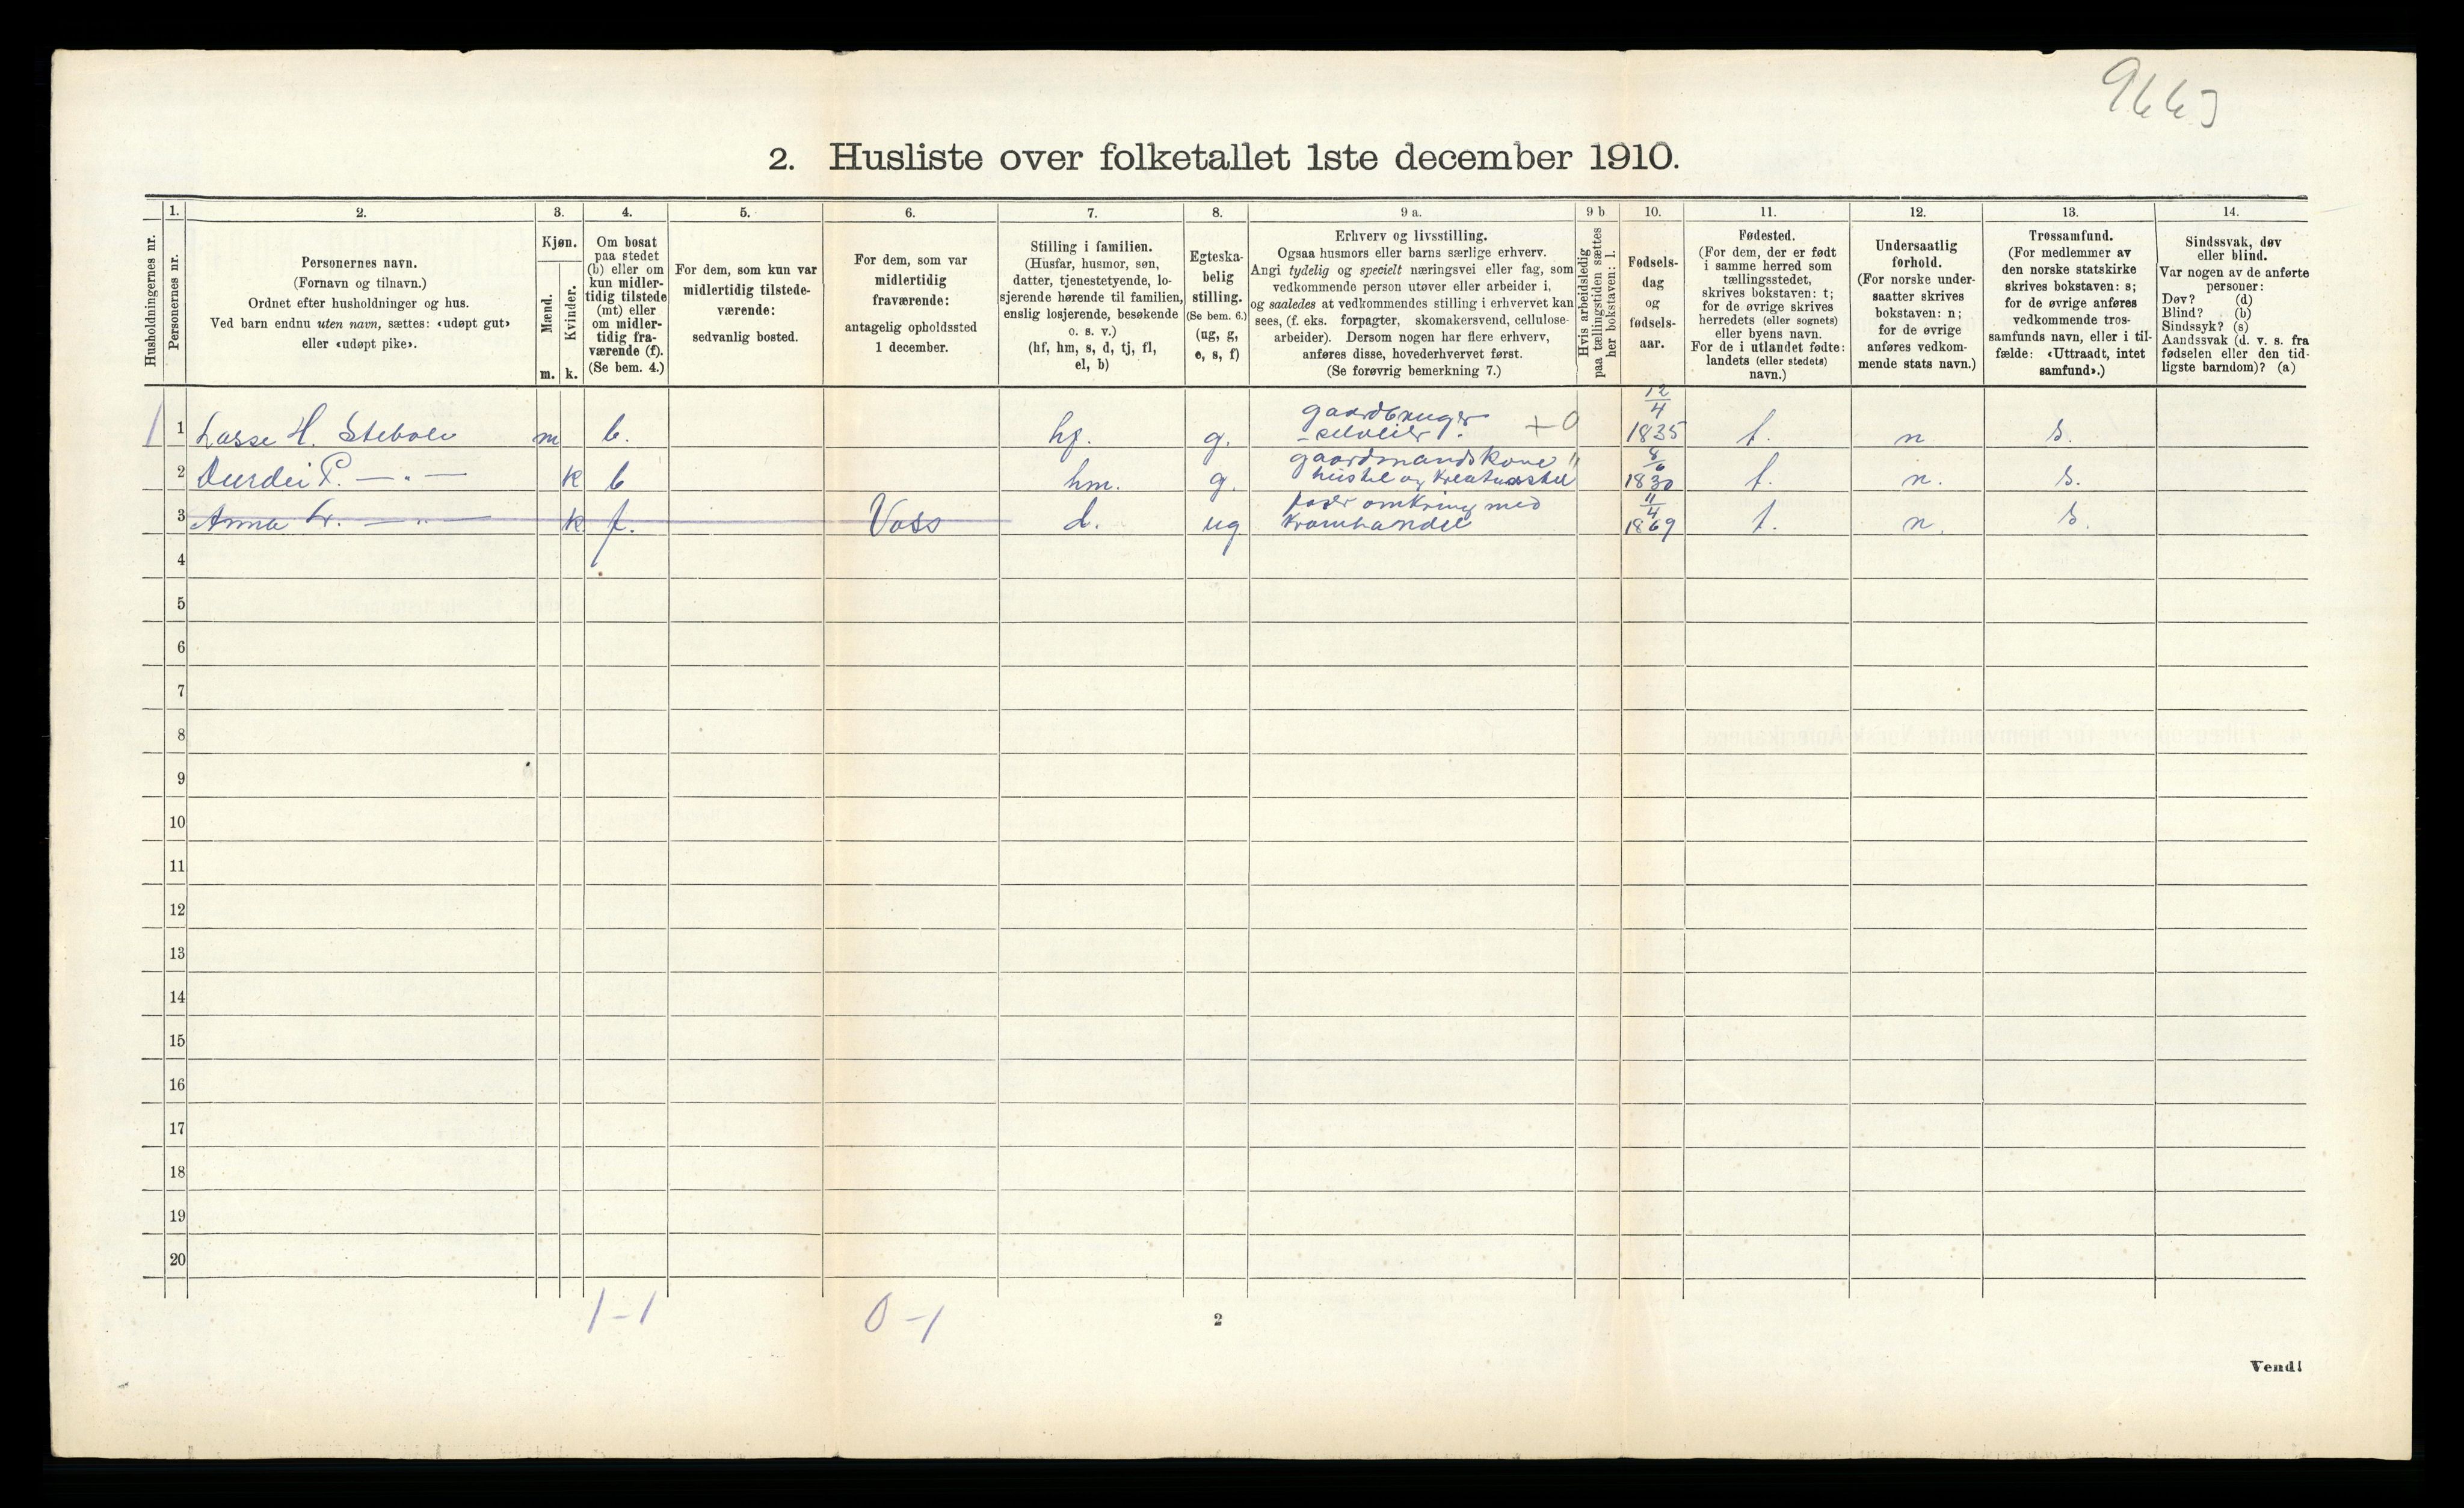 9663
2. Husliste over folketallet 1ste december 1910.
1. 2. 3. 4. 5. 6. 7. 8. 9 a. 9 b 10. 11. 12. 13. 14.
Husholdningernes nr.
Personernes nr.
Personernes navn.
(Fornavn og tilnavn.)
Ordnet efter husholdninger og hus.
Ved barn endnu uten navn, sættes: «udøpt gut»
eller «udøpt pike».
Kjøn.
Mænd.
Kvinder.
m. k.
Om bosat
paa stedet
(b) eller om
kun midler-
tidig tilstede
(mt) eller
om midler-
tidig fra-
værende (f).
(Se bem. 4.)
For dem, som kun var
midlertidig tilstede-
værende:
sedvanlig bosted.
For dem, som var
midlertidig
fraværende:
antagelig opholdssted
1 december.
Stilling i familien.
(Husfar, husmor, søn,
datter, tjenestetyende, lo-
sjerende hørende til familien,
enslig losjerende, besøkende
o. s. v.)
(hf, hm, s, d, tj, fl,
el, b)
Egteska-
belig
stilling.
(Se bem. 6.)
(ug, g,
e, s, f)
Erhverv og livsstilling.
Ogsaa husmors eller barns særlige erhverv.
Angi tydelig og specielt næringsvei eller fag, som
vedkommende person utøver eller arbeider i,
og saaledes at vedkommendes stilling i erhvervet kan
sees, (f. eks. forpagter, skomakersvend, cellulose-
arbeider). Dersom nogen har flere erhverv,
anføres disse, hovederhvervet først.
(Se forøvrig bemerkning 7.)
Hvis arbeidsledig
paa tællingstiden sættes
her bokstaven: l.
Fødsels-
dag
og
fødsels-
aar.
Fødested.
(For dem, der er født
i samme herred som
tællingsstedet,
skrives bokstaven: t;
for de øvrige skrives
herredets (eller sognets)
eller byens navn.
For de i utlandet fødte:
landets (eller stedets)
navn.)
Undersaatlig
forhold.
(For norske under-
saatter skrives
bokstaven: n;
for de øvrige
anføres vedkom-
mende stats navn.)
Trossamfund.
(For medlemmer av
den norske statskirke
skrives bokstaven: s;
for de øvrige anføres
vedkommende tros-
samfunds navn, eller i til-
fælde: «Uttraadt, intet
samfund».)
Sindssvak, døv
eller blind.
Var nogen av de anførte
personer:
Døv? (d)
Blind? (b)
Sindssyk? (s)
Aandssvak (d. v. s. fra
fødselen eller den tid-
ligste barndom)? (a)
gaardbruger 12/4
1 1 Lasse H. Stebole m b. hf. g. - selveier. +0 1835 t. n s.
gaardmandskone 8/6
2 Durdei P. — „ — k b hm. g. husstel og kreaturstel 1830 t. n. s.
farer omkring med 11/4
3 Anna L. — „ — k. f. Voss d. ug kramhandel 1869 t. n. s.
4
5
6
7
8
9
10
11
12
13
14
15
16
17
18
19
20
1-1 0-1
2
Vend!